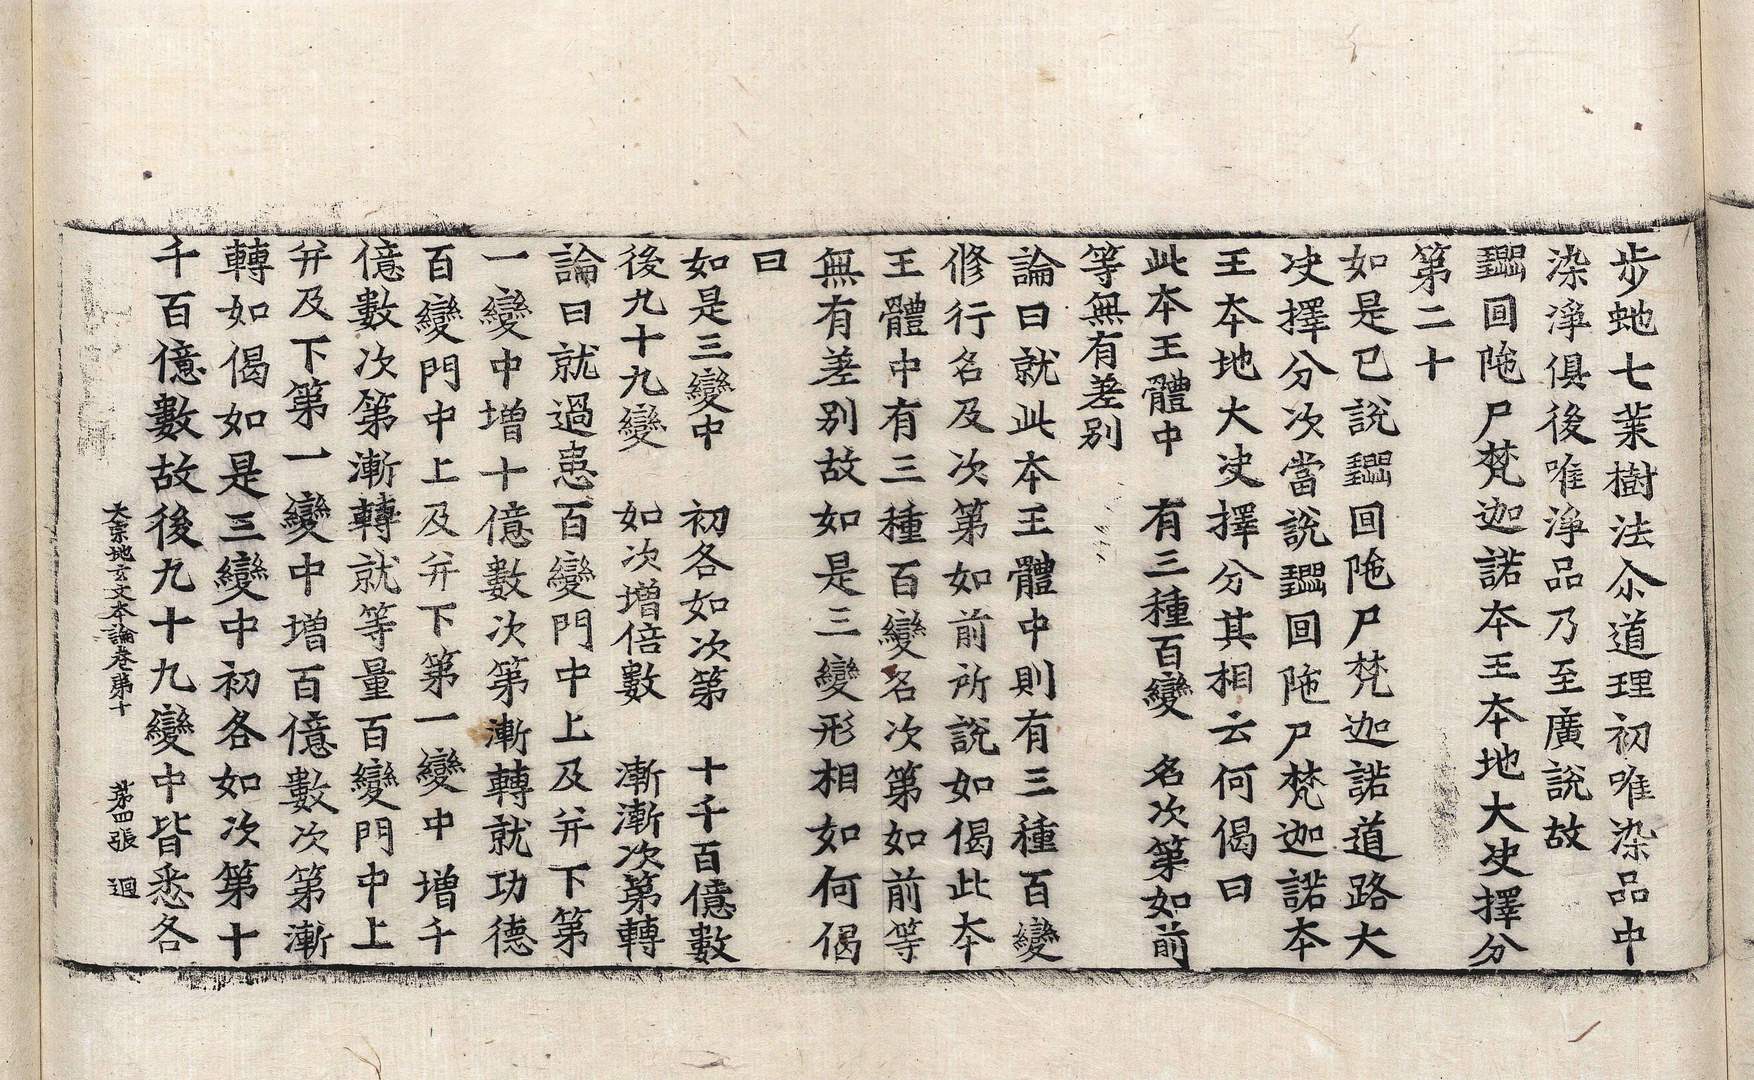 步虵七葉樹法尒道理初唯染品中
染淨俱後唯淨品乃至廣說故
鑘囬陁尸梵迦諾本王本地大决擇分
第二十
如是已說鑘囬陁尸梵迦諾道路大
决擇分次當說鑘囬陁尸梵迦諾本
王本地大决擇分其相云何偈曰
此本王體中 有三種百變 名次第如前
等無有差別
論曰就此本王體中則有三種百變
修行名及次第如前所說如偈此本
王體中有三種百變名次第如前等
無有差別故如是三變形相如何偈
曰
如是三變中 初各如次第 十千百億數
後九十九變 如次增倍數 漸漸次第轉
論曰就過患百變門中上及并下第
一變中增十億數次第漸轉就功德
百變門中上及并下第一變中增千
億數次第漸轉就等量百變門中上
并及下第一變中增百億數次第漸
轉如偈如是三變中初各如次第十
千百億數故後九十九變中皆悉各
大宗地玄文本論卷第十 第四張 迴